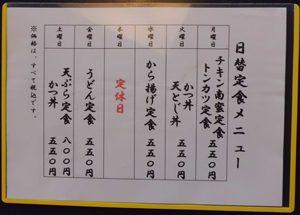 日替定食メニュー
月曜日
チキン南蛮定食
トンカツ定食 五五〇円
火曜日
かつ丼
天とじ丼 五五〇円
水曜日
から揚げ定食 五五〇円
木曜日
定休日
金曜日
うどん定食 五五〇円
土曜日
天ぷら定食 八〇〇円
かつ丼 五五〇円
※価格は、すべて税込です。